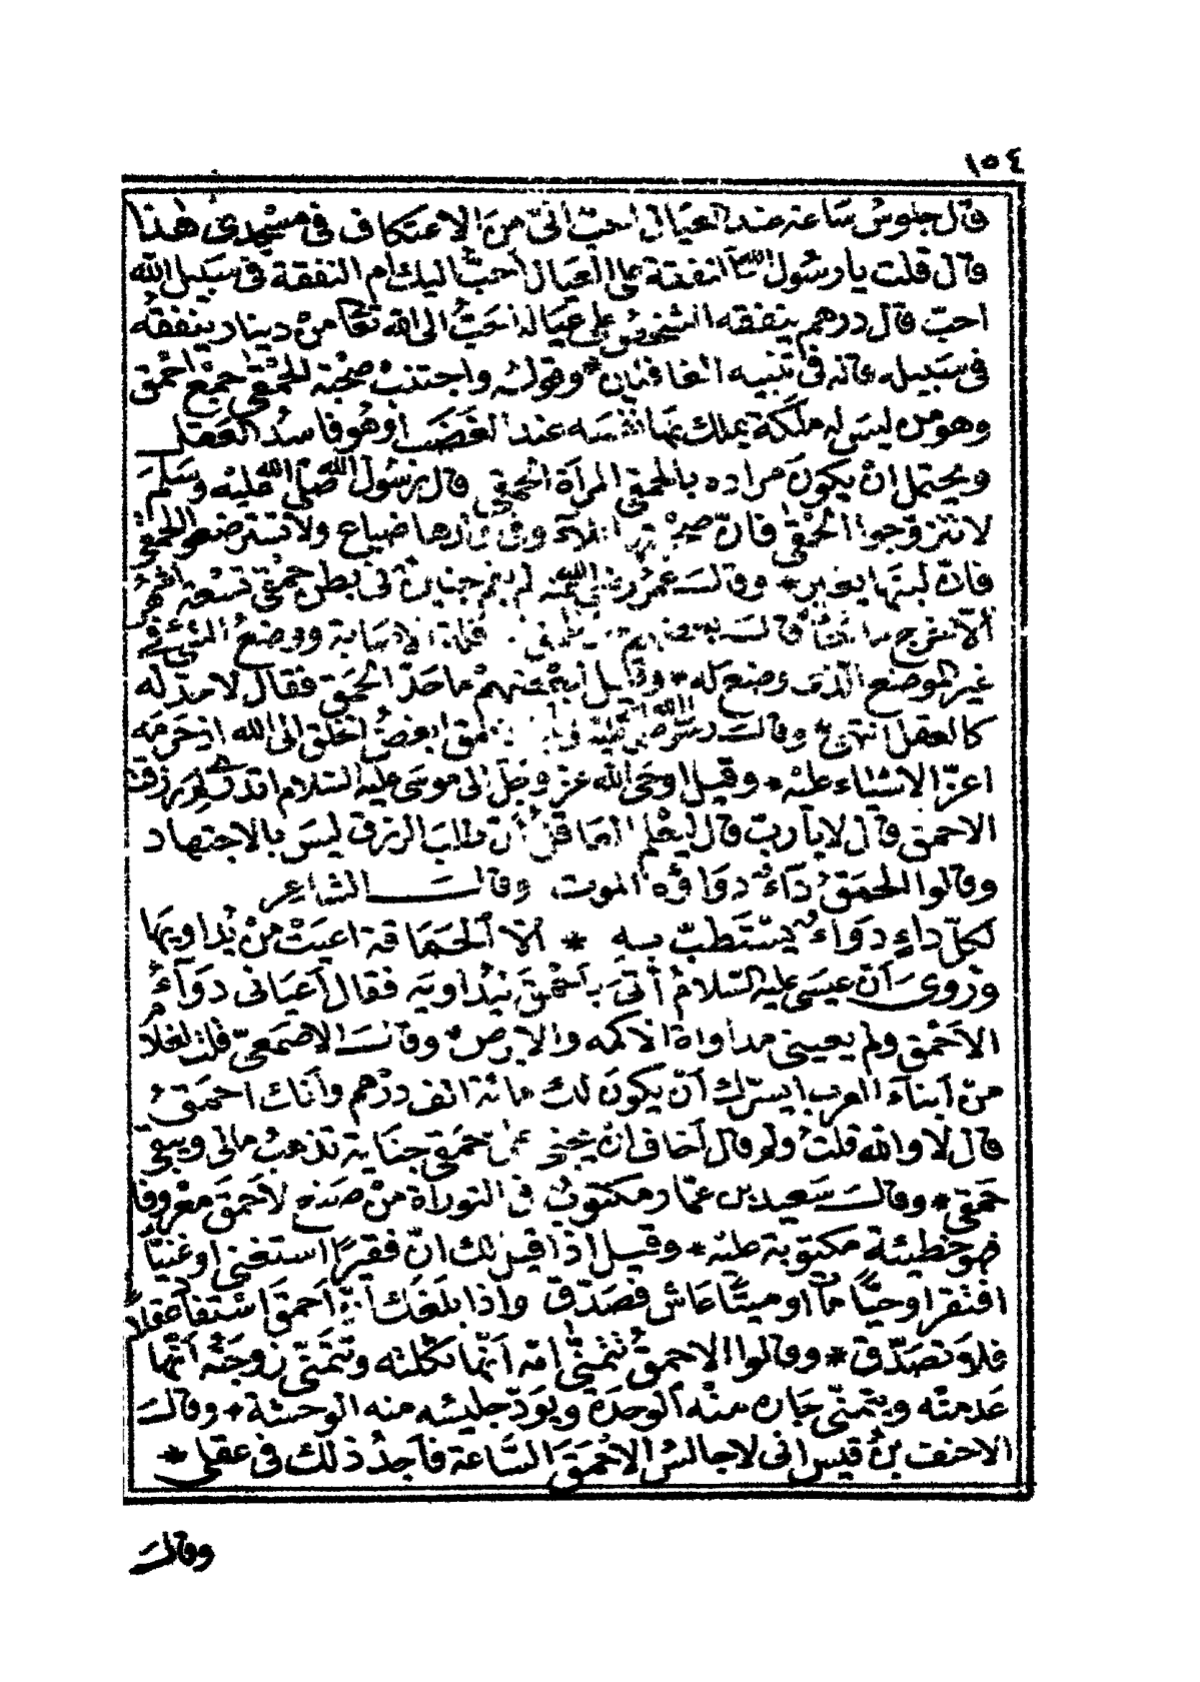 ١٥٤
قال جلوس ساعة عند العيال احب الىّ من الاعتكاف فى مسجدى هذا
قال قلت يا رسول الله النفقة على العيال احبّ اليك ام النفقة فى سبيل الله
احبّ قال درهم ينفقه الشخص على عياله احَبُّ الى الله تعا من دينار ينفقه
فى سبيل الله قاله فى تنبيه الغافلين * وقوله واجتنب صحبة الحمقى جمع احمق
وهو من ليس له ملَكة يملك بها نفسه عند الغضب أو هو فاسد العقل
ويحتمل انْ يكون مراده بالحمقى المرأة الحمقى قال رسول الله صلى الله عليه وسلّم
لا تتزوجوا الحمقى فانّ صحبتها بلاء وفى ولدها ضياع ولا تسترضعوا الحمقى
فانّ لبنها يغير * وقال عمر رضى الله عنه لم يقم جنين فى بطن حمقى تسعة اشهر
ألا خرج مائقا قال بعضهم قلة الاصابة ووضع الشئ فى
غير الموضع الذى وضع له * وقيل لبعضهم ما حدّ الحمق فقال لا حدّ له
كالعقل انتهى * وقال رسول صلى الله عليه الاحمق ابغض الخلق الى الله اذ حرمه
اعزّ الاشياء عليه * وقيل اوحى الله عزّ وجلّ الى موسى عليه السلام اتدرى لِمَ رزقت
الاحمق قال لا يا ربّ قال ليعلم العاقل أنّ طلب الرزق ليس بالاجتهاد
وقالوا الحمق دَآءٌ دوَاؤه الموت وقال الشاعر
لكلّ داءٍ دوَاءٌ يستطبّ به * الّا الحماقة اعيت من يداويها
ورُوى أنّ عيسى عليه السلام أُتى بأحمق ليداويه فقال أعيانى دوَآءُ
الأحمق ولم يعينى مداواة الاكمه والابرص * وقال الاصمعىّ قلت لغلام
من أبناء العرب ايسرّك أنْ يكون لك مائة الف درهم وأنك احمق
قال لا والله قلت ولم قال أخاف ان يجنى علىّ حمقى جناية تذهب مالى ويبقى
حمقى * وقال سعيد بن عمّار مكتوب فى التوراة من صنع لاحمق معروفا
فهو خطيئة مكتوبة عليه * وقيل اذا قيل لك انّ فقيرًا استغنى او غنيّا
افتقر او حيًّا مات او ميتًا عاش فصدّق واذا بلغك أنّ أحمق استفاد عقلاً
فلا تصدّق * وقالوا الاحمق تتمنّى امّه أنّها ثكلته وتتمنّى زوجته أنّها
عدمته ويتمنّى جاره منه الوحدة ويودّ جليسه منه الوحشة * وقال
الاحنف بن قيس انى لاجالس الاحمق السّاعة فاجد ذلك فى عقلى *
وقال